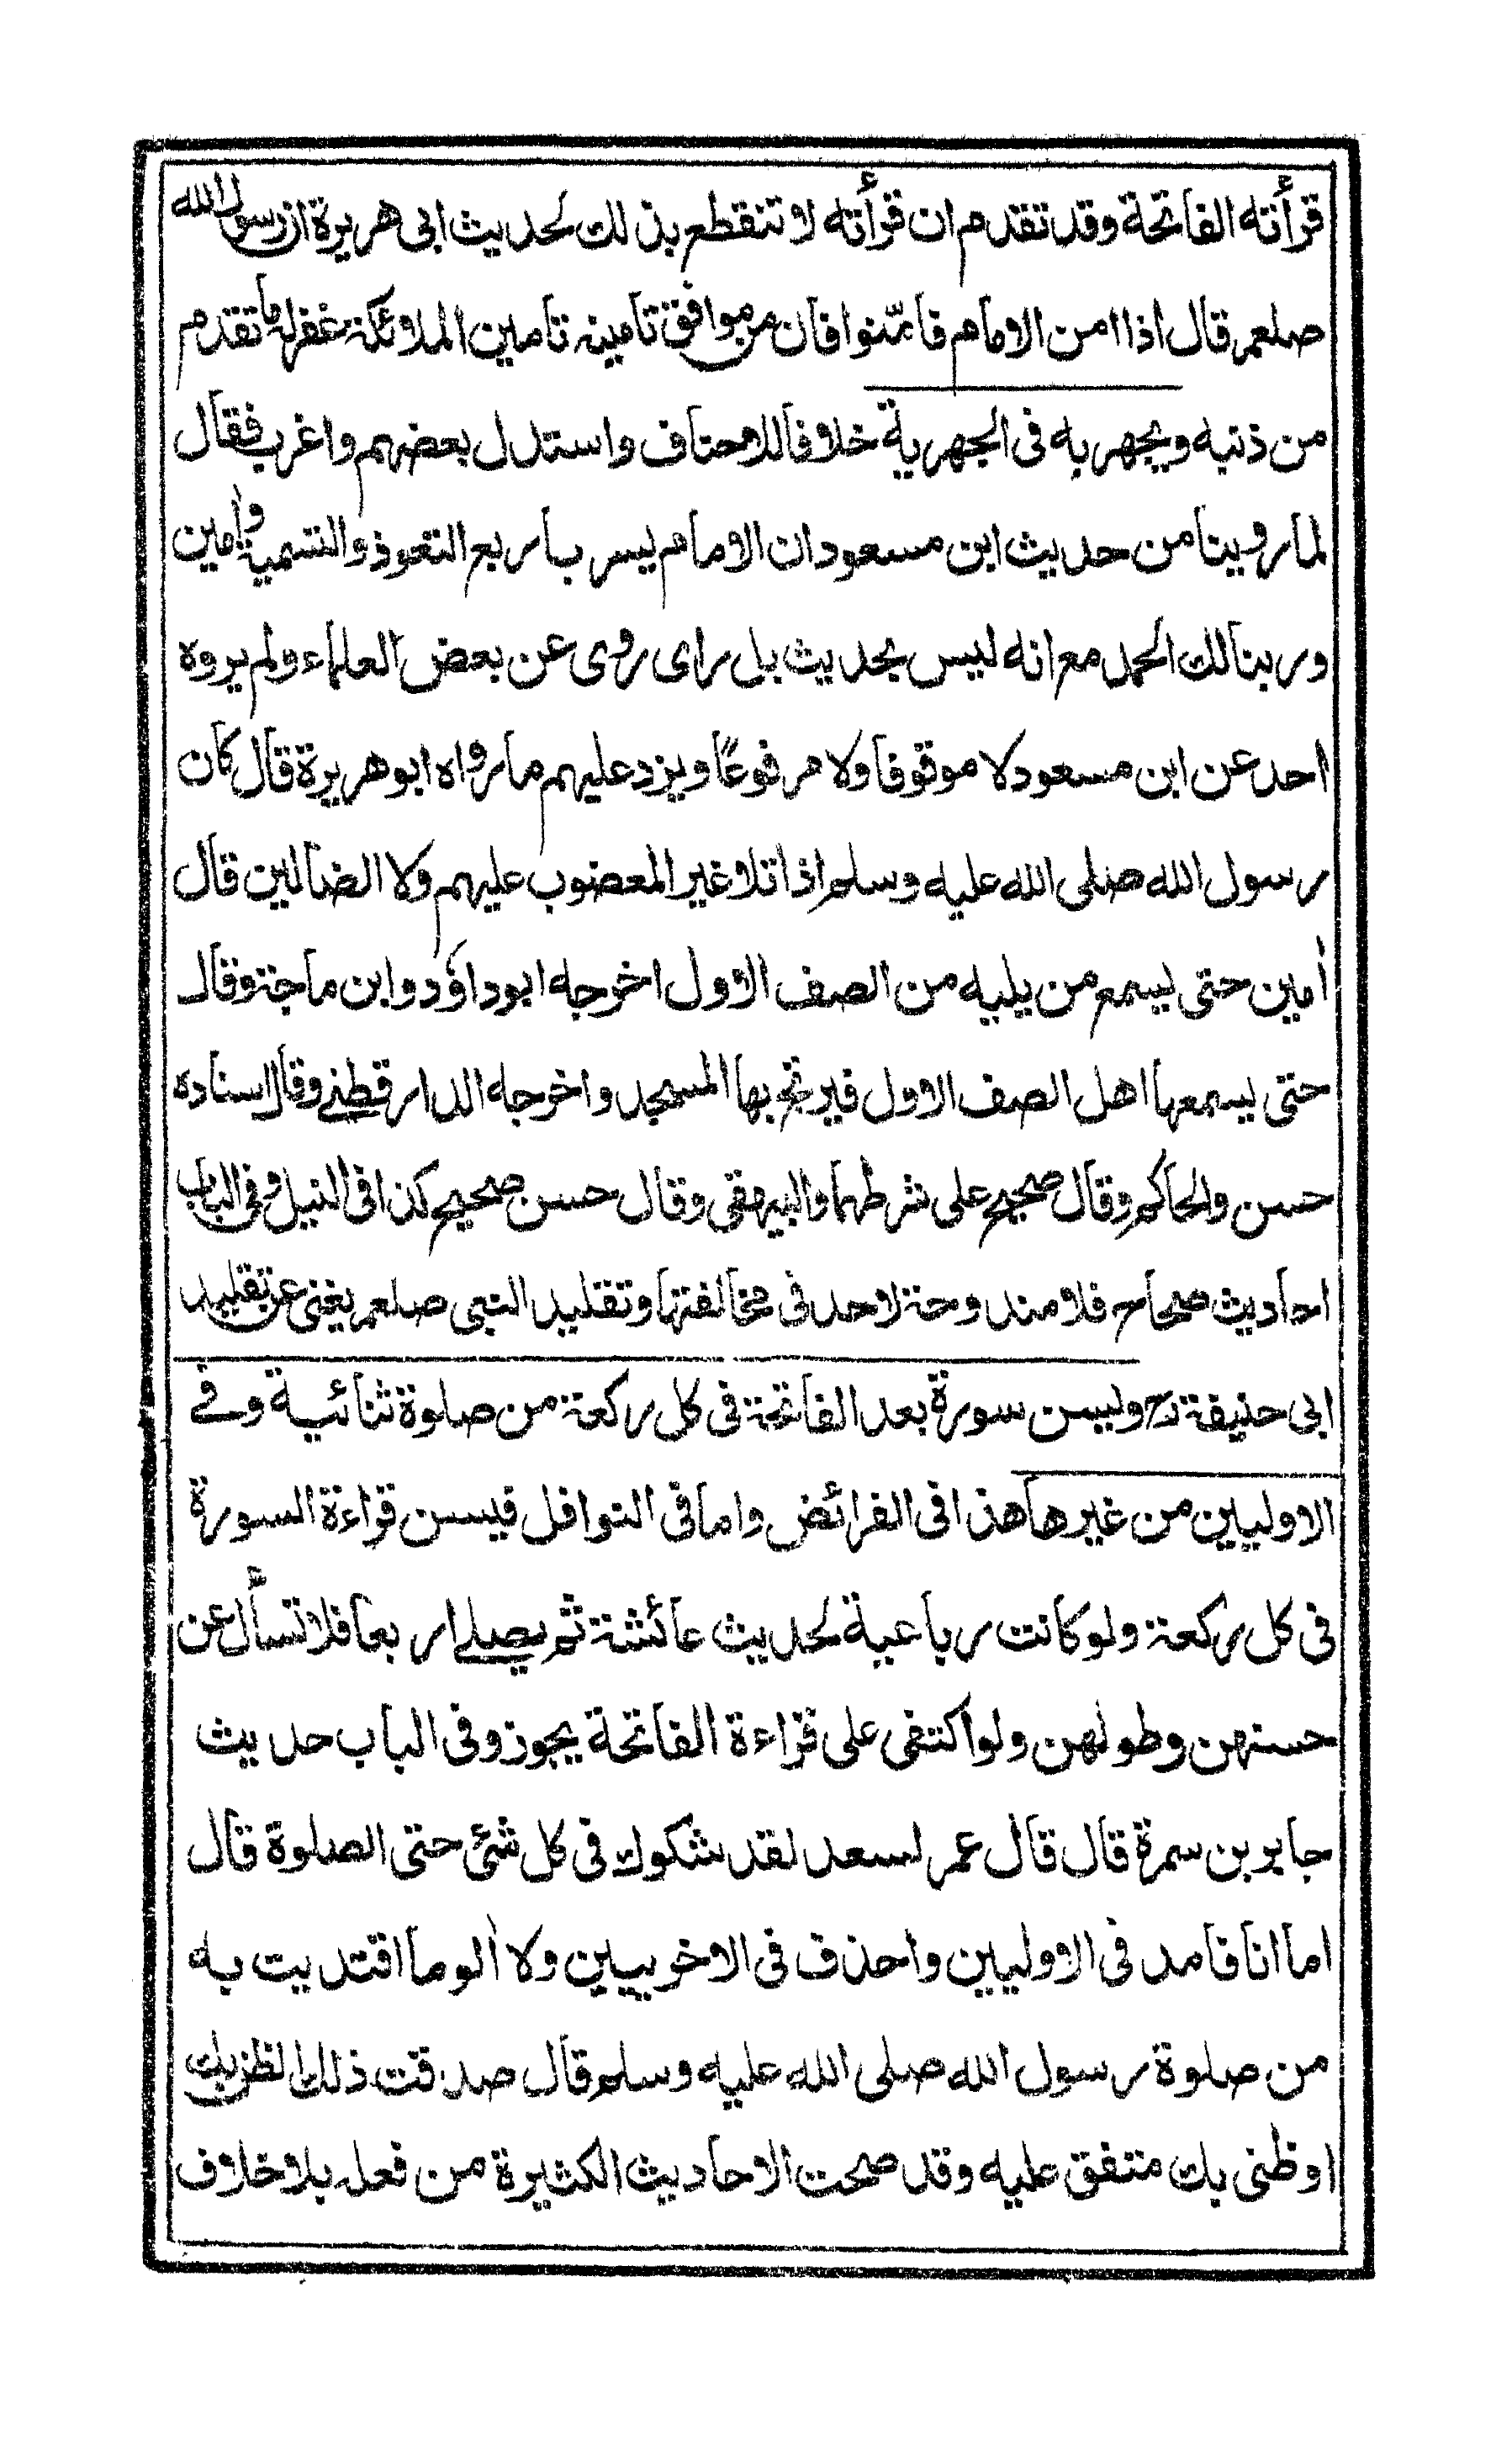 قرأته الفاتحة وقد تقدم ان قرأته لا تنقطع بذلك لحديث ابى هريرة ان رسول الله
صلعم قال اذا امن الامام فامّنوا فان من وافق تامينه تامين الملائكة غفر له ما تقدم
من ذنبه ويجهر به فى الجهرية خلافا للاحناف واستدل بعضهم واغرب فقال
لما روينا من حديث ابن مسعود ان الامام يسر باربع التعوذ والتسمية وأمين
وربنا لك الحمد مع انه ليس بحديث بل راى روى عن بعض العلماء ولم يروه
احد عن ابن مسعود لا موقوفا ولا مرفوعًا ويزد عليهم ما رواه ابو هريرة قال كان
رسول الله صلى الله عليه وسلم اذا تلا غير المعضوب عليهم ولا الضالين قال
أمين حتى يسمع من يليه من الصف الاول اخرجه ابو داؤد وابن ماجة وقال
حتى يسمعها اهل الصف الاول فيرتج بها المسجد واخرجه الدارقطنى وقال اسناده
حسن والحاكم وقال صحيح على شرطهما والبيهقى وقال حسن صحيح كذا فى النيل وفى الباب
احاديث صحاح فلا مندوحة لاحد فى مخالفتها وتقليد النبى صلعم يغنى عن تقليد
ابى حنيفة رح وليسن سورة بعد الفاتحة فى كل ركعة من صلوة ثنائية وفى
الاوليين من غيرها هذا فى الفرائض واما فى النوافل فيسن قراءة السورة
فى كل ركعة ولو كانت رباعية لحديث عائشة ثم يصلى اربعا فلا تسأل عن
حسنهن وطولهن ولو اكتفى على قراءة الفاتحة يجوز وفى الباب حديث
جابر بن سمرة قال قال عمر لسعد لقد شكوك فى كل شئ حتى الصلوة قال
اما انا فامد فى الاوليين واحذف فى الاخريين ولا ألو ما اقتديت به
من صلوة رسول الله صلى الله عليه وسلم قال صدقت ذلك الظن بك
او ظنى بك متفق عليه وقد صحت الاحاديث الكثيرة من فعله بلا خلاف